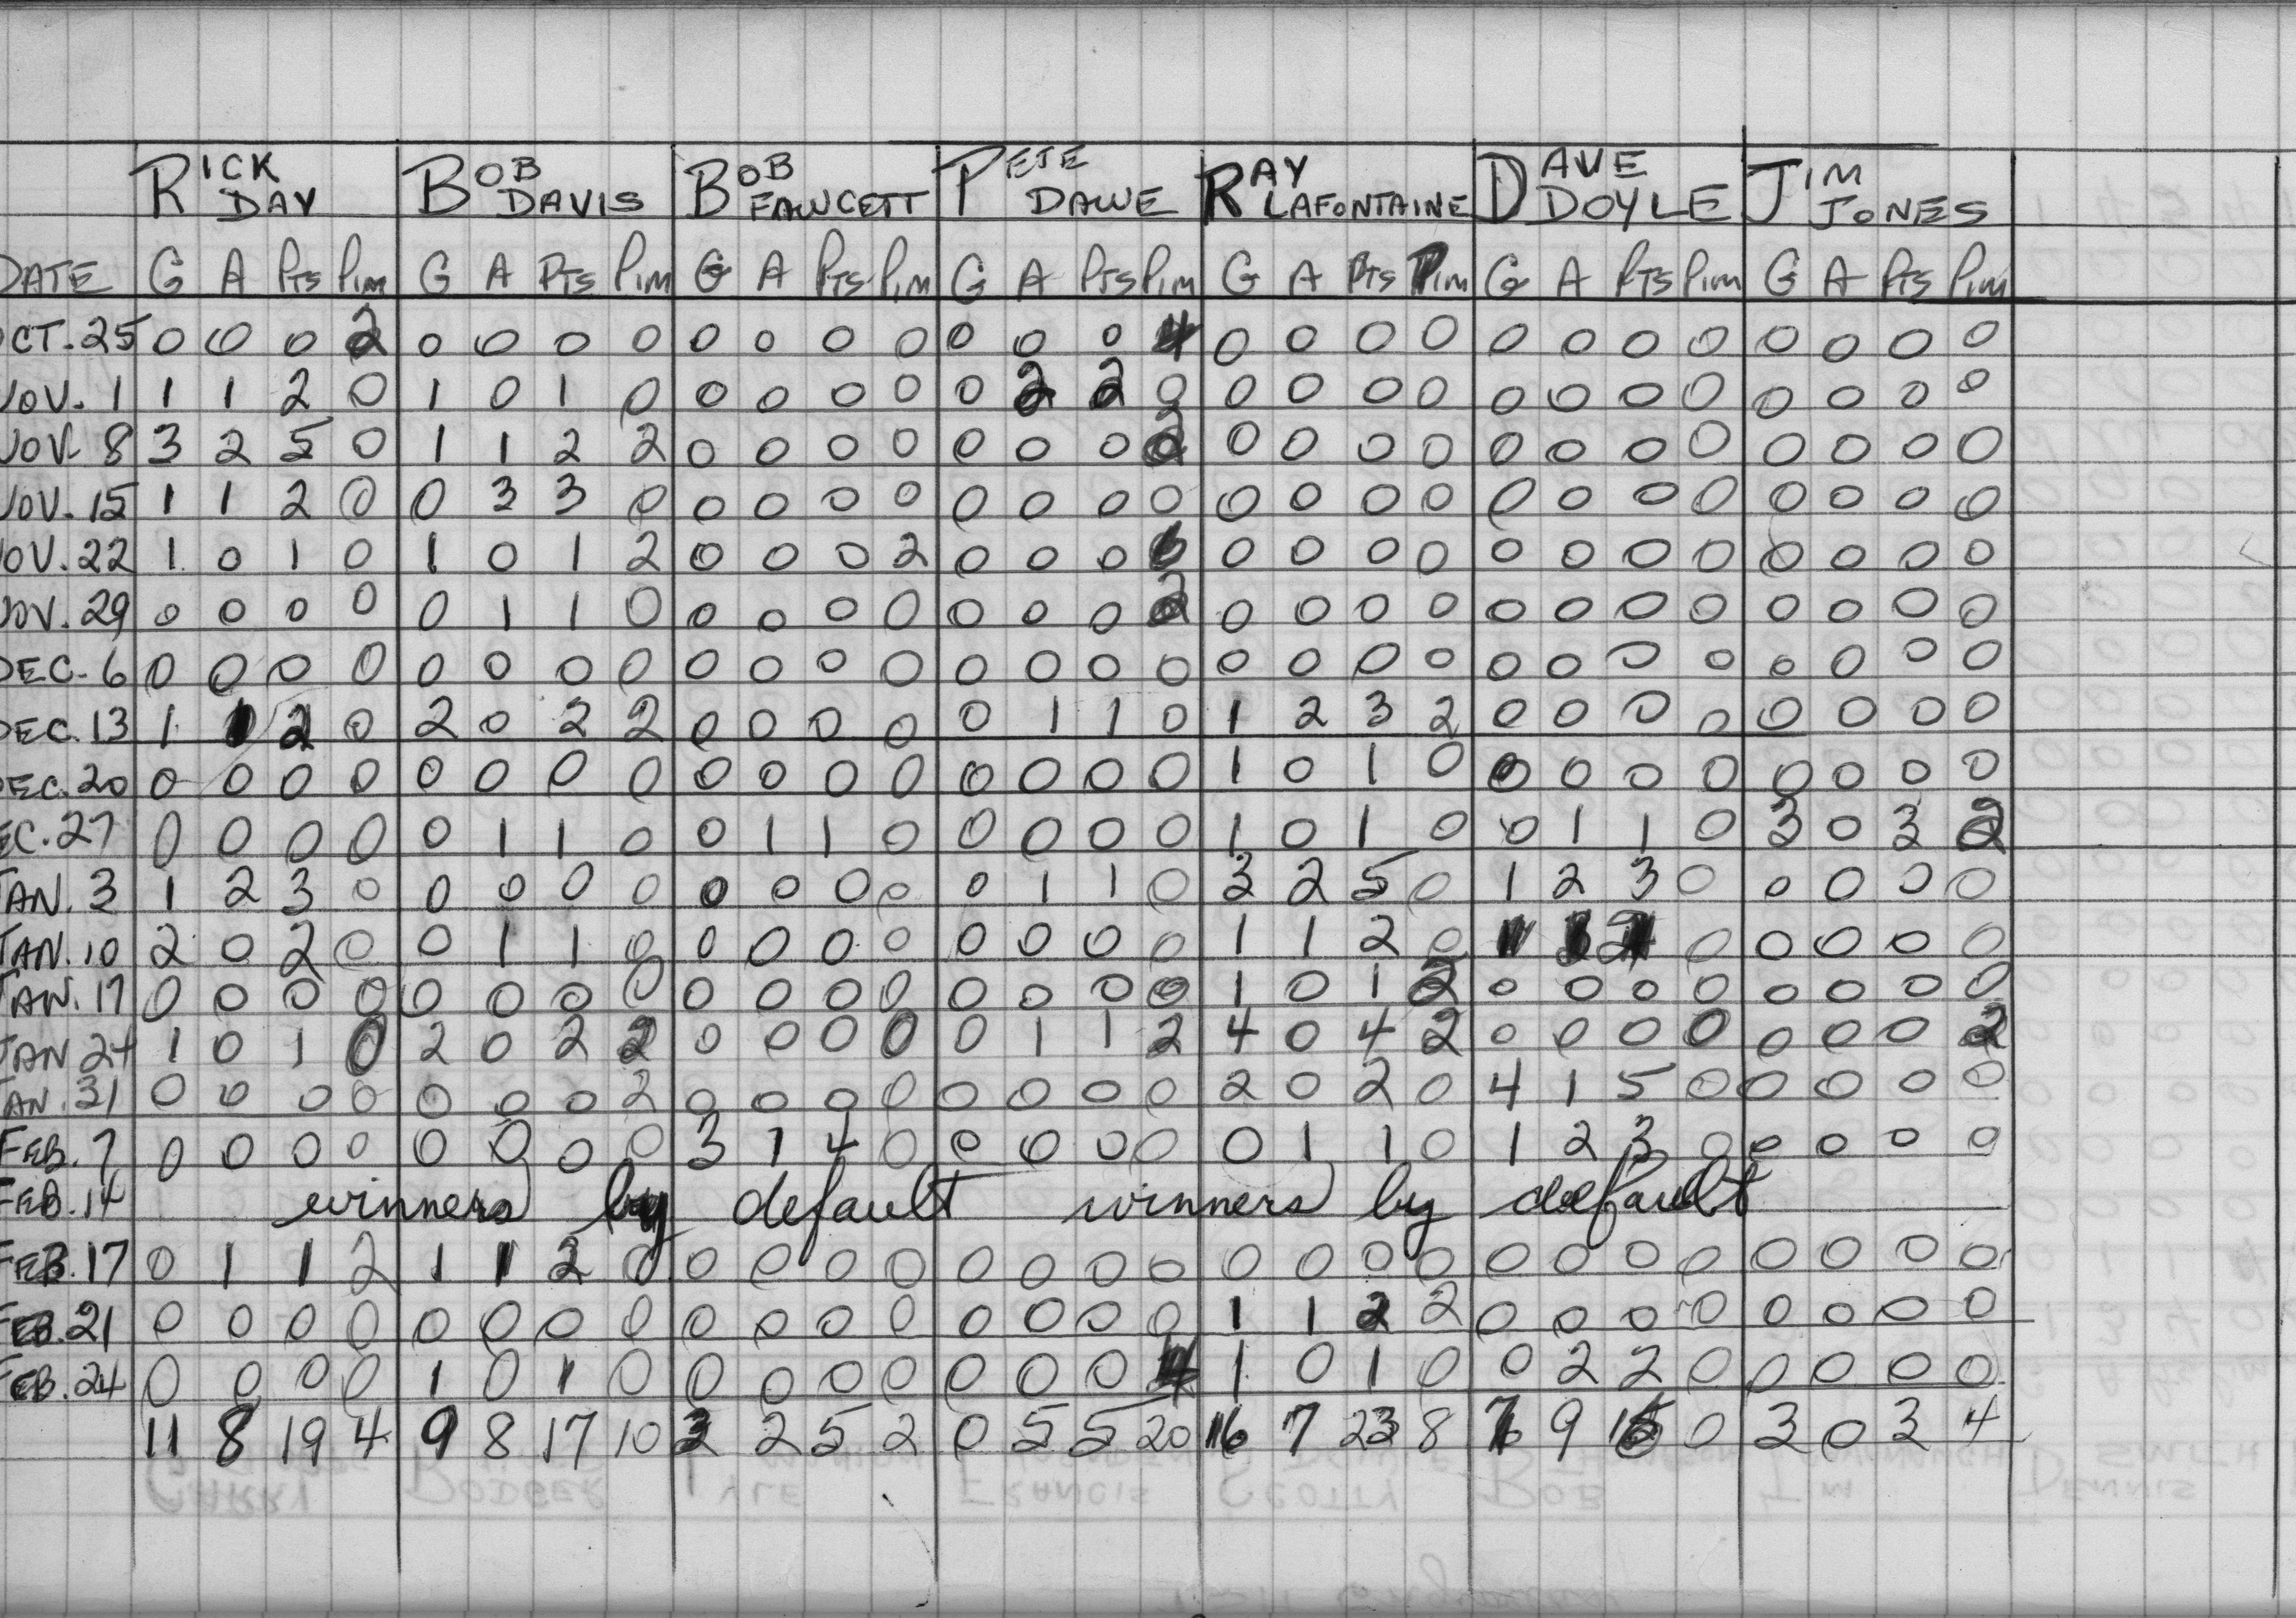 RICK DAY BOB DAVIS BOB FAWCETT PETE DAWE RAY LAFONTAINE DAVE DOYLE JIM JONES
DATE G A PTS PIM G A PTS PIM G A PTS PIM G A PTS PIM G A PTS PIM G A PTS PIM G A PTS PIM
OCT. 25 0 0 0 2 0 0 0 0 0 0 0 0 0 0 0 4 0 0 0 0 0 0 0 0 0 0 0 0
NOV. 1 1 1 2 0 1 0 1 0 0 0 0 0 0 2 2 0 0 0 0 0 0 0 0 0 0 0 0 0
NOV. 8 3 2 5 0 1 1 2 2 0 0 0 0 0 0 0 2 0 0 0 0 0 0 0 0 0 0 0 0
NOV. 15 1 1 2 0 0 3 3 0 0 0 0 0 0 0 0 0 0 0 0 0 0 0 0 0 0 0 0 0
NOV. 22 1 0 1 0 1 0 1 2 0 0 0 2 0 0 0 6 0 0 0 0 0 0 0 0 0 0 0 0
NOV. 29 0 0 0 0 0 1 1 0 0 0 0 0 0 0 0 2 0 0 0 0 0 0 0 0 0 0 0 0
DEC. 6 0 0 0 0 0 0 0 0 0 0 0 0 0 0 0 0 0 0 0 0 0 0 0 0 0 0 0 0
DEC. 13 1 1 2 0 2 0 2 2 0 0 0 0 0 1 1 0 1 2 3 2 0 0 0 0 0 0 0 0
DEC. 20 0 0 0 0 0 0 0 0 0 0 0 0 0 0 0 0 1 0 1 0 0 0 0 0 0 0 0 0
DEC. 27 0 0 0 0 0 1 1 0 0 1 1 0 0 0 0 0 1 0 1 0 0 1 1 0 3 0 3 2
JAN. 3 1 2 3 0 0 0 0 0 0 0 0 0 0 1 1 0 3 2 5 0 1 2 3 0 0 0 0 0
JAN. 10 2 0 2 0 0 1 1 0 0 0 0 0 0 0 0 0 1 1 2 0 0 0 0 0 0
JAN. 17 0 0 0 0 0 0 0 0 0 0 0 0 0 0 0 0 1 0 1 2 0 0 0 0 0 0 0 0
JAN 24 1 0 1 0 2 0 2 2 0 0 0 0 0 1 1 2 4 0 4 2 0 0 0 0 0 0 0 2
JAN. 31 0 0 0 0 0 0 0 2 0 0 0 0 0 0 0 0 2 0 2 0 4 1 5 0 0 0 0 0
FEB. 7 0 0 0 0 0 0 0 0 3 1 4 0 0 0 0 0 0 1 1 0 1 2 3 0 0 0 0 0
FEB. 14 winners by default winners by default
FEB. 17 0 1 1 2 1 1 2 0 0 0 0 0 0 0 0 0 0 0 0 0 0 0 0 0 0 0 0 0
FEB. 21 0 0 0 0 0 0 0 0 0 0 0 0 0 0 0 0 1 1 2 2 0 0 0 0 0 0 0 0
FEB. 24 0 0 0 0 1 0 1 0 0 0 0 0 0 0 0 4 1 0 1 0 0 2 2 0 0 0 0 0
11 8 19 4 9 8 17 10 3 2 5 2 0 5 5 20 16 7 23 8 9 0 3 0 3 4